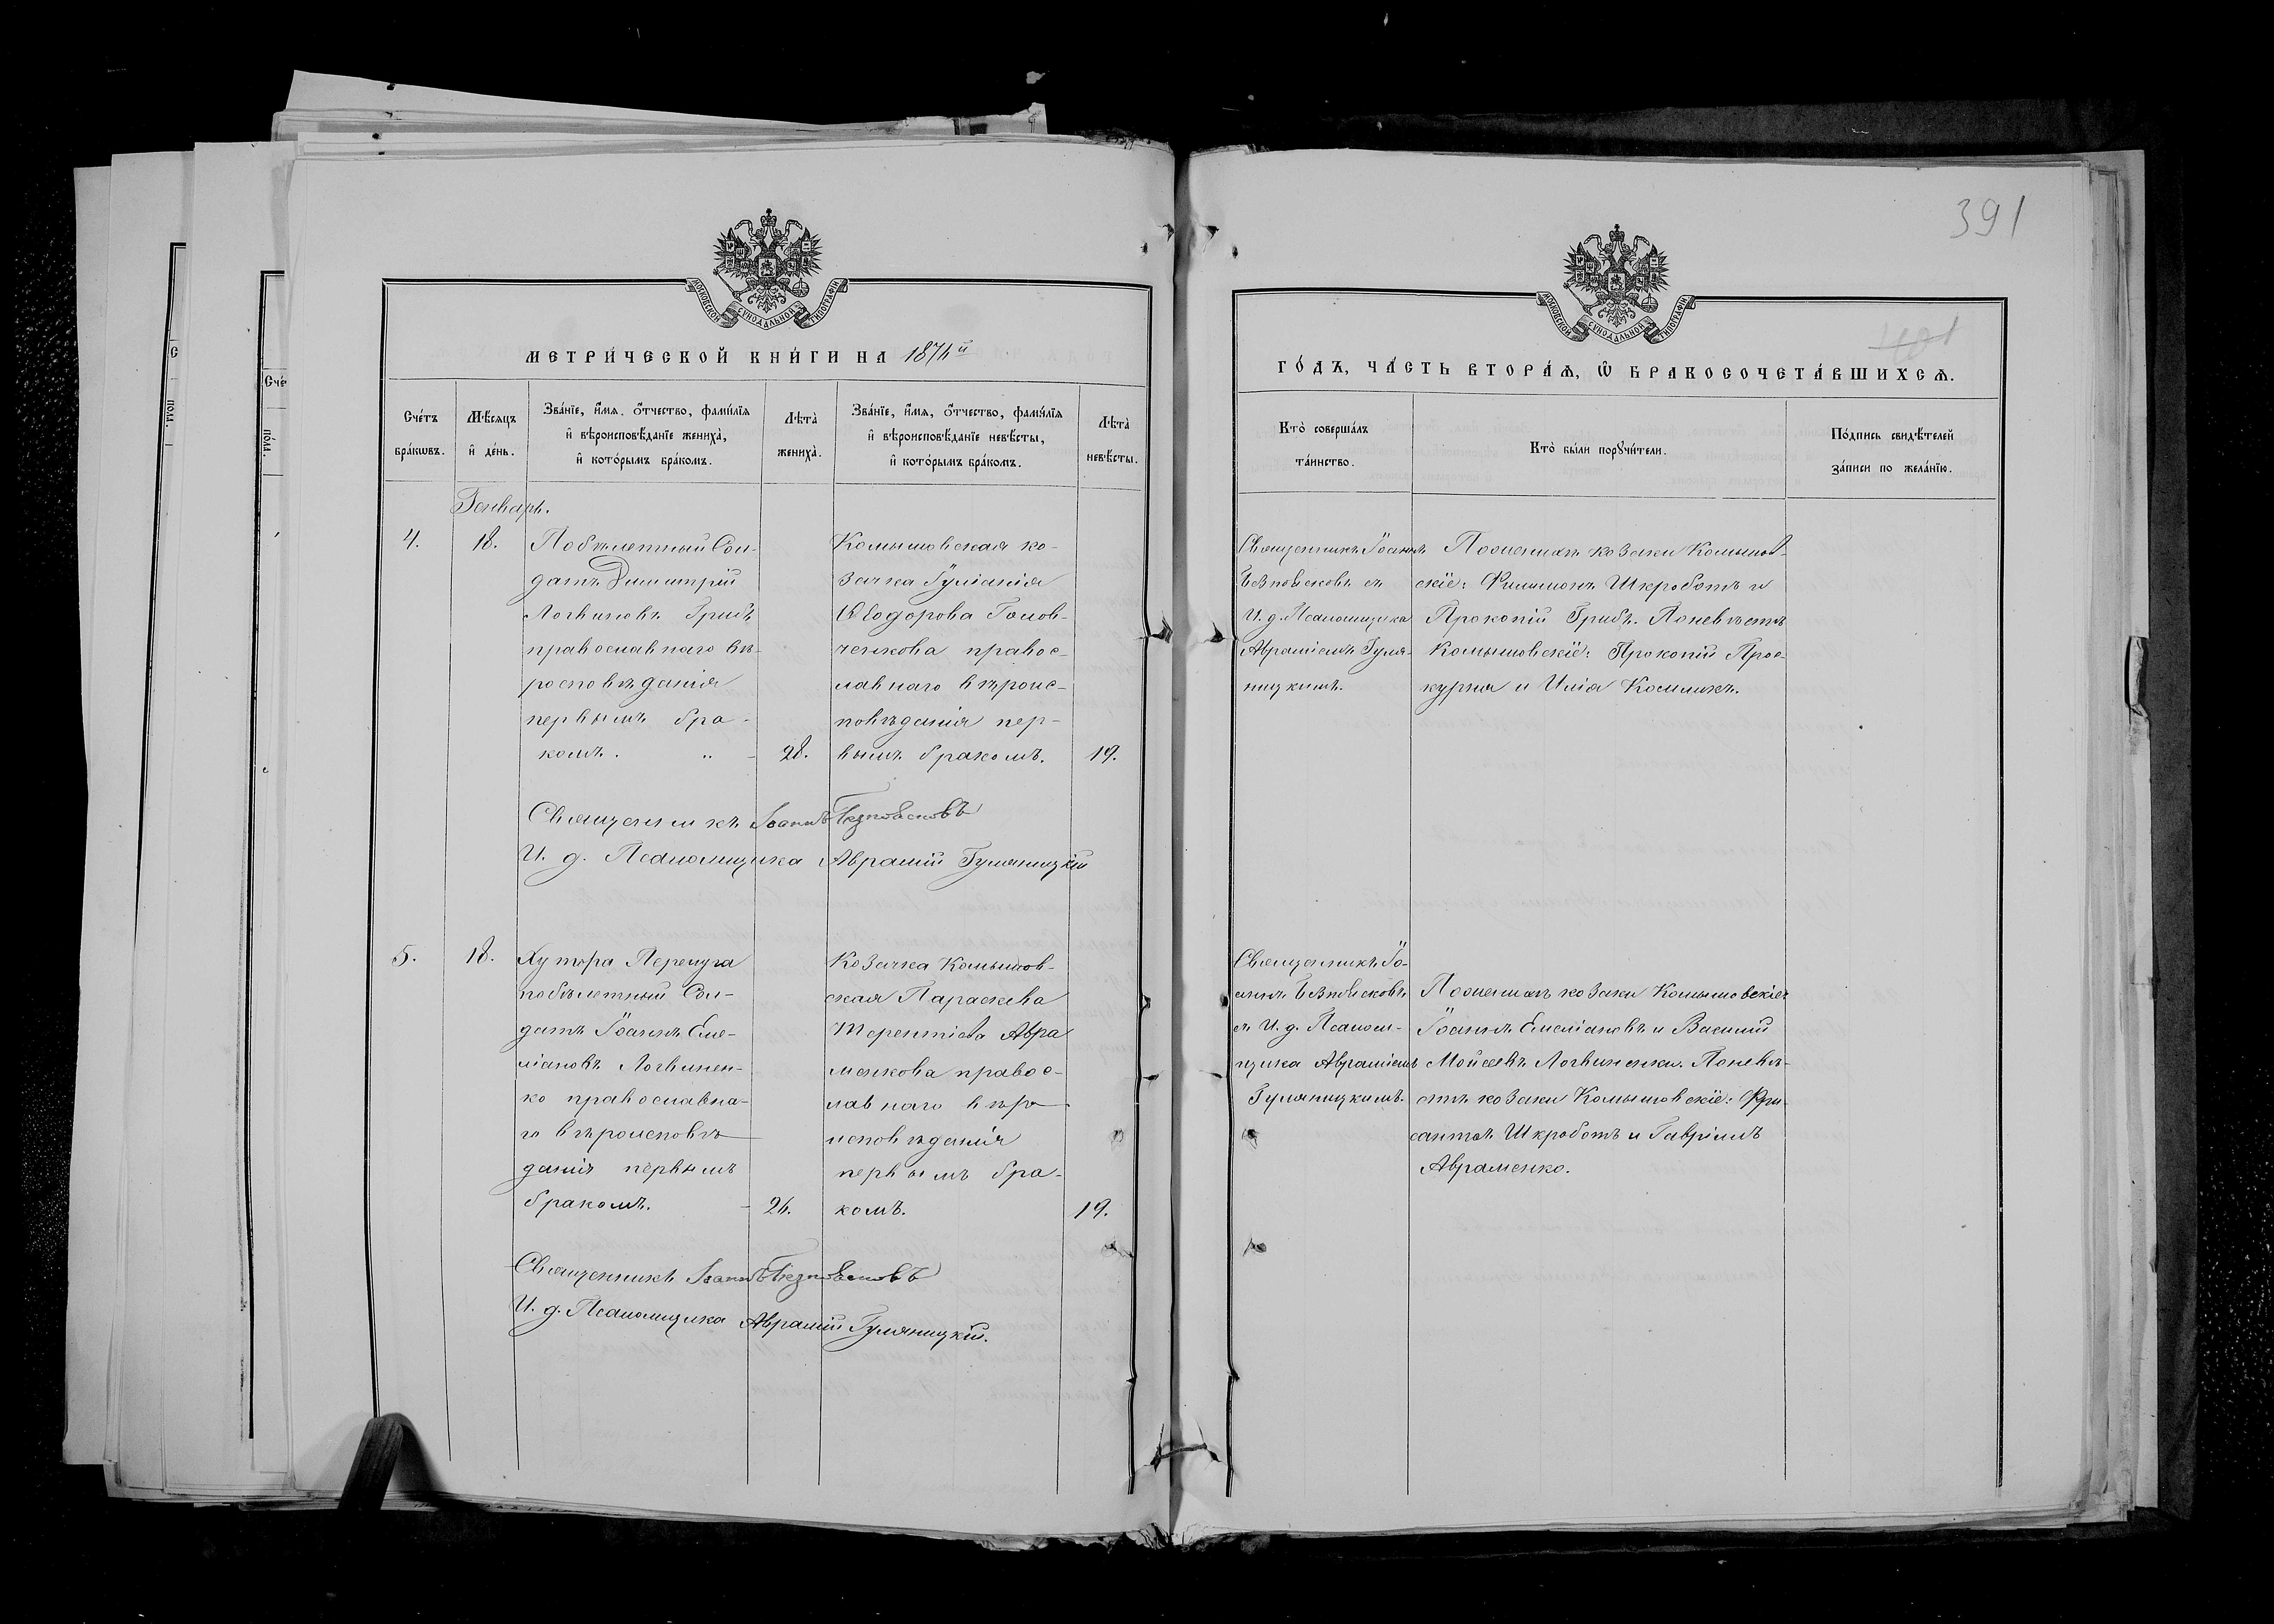 391
МОСКОВСКОЙ СУНОДАЛЬНОЙ ТИПОГРАФІИ
МОСКОВСКОЙ СУНОДАЛЬНОЙ ТИПОГРАФІИ
МЕТРИ́ЧЕСКОЙ КНИ́ГИ НА 1874й
ГО́ДЪ, ЧА́СТЬ ВТОРА́Ѧ, Ѿ БРАКОСОЧЕТА́ВШИХСѦ.
Сче́тъ бра́кѡвъ.
Мѣ́сяцъ и҆ де́нь.
Зва́нїе, и҆́мѧ, ѻ҆́тчество, фами́лїѧ
и҆ вѣроисповѣ́данїе жениха̀,
и҆ кото́рымъ бра́комъ.
Лѣта̀ жениха̀.
Зва́нїе, и҆́мѧ, ѻ҆́тчество, фами́лїѧ
и҆ вѣроисповѣ́данїе невѣ́сты,
и҆ кото́рымъ бра́комъ.
Лѣта̀ невѣ́сты.
Кто̀ соверша́лъ
та́инство.
Кто̀ бы́ли порꙋчи́тели.
По́дпись свидѣ́телей
за́писи по жела́нїю.
Генварь.
4.
18.
Побѣлетный Сол-
датъ Димитрій
Логвиновъ Грибъ
православнаго вѣ-
роисповѣданія
первымъ бра-
комъ.
28.
Комышовская ко-
зачка Іуліанія
Ѳеодорова Голов-
ченкова правос-
лавнаго вѣроис-
повѣданія пер-
вымъ бракомъ.
19.
Священникъ Іоаннъ
съ
И. д. Псаломщика
Авраміемъ Гуля-
ницкимъ.
Поженихѣ козаки Комышов-
скіе: Филимонъ Шкроботъ и
Прокопій Грибъ. Поневѣстѣ
Комышовскіе: Прокопій Прос-
курня и Илія
Священникъ Іоаннъ
И. д. Псаломщика Аврамій Гуляницкій
5.
18.
Хутора Перелуга
побѣлетный Сол-
датъ Іоаннъ Еме-
ліановъ Логвинен-
ко православна-
го вѣроисповѣ-
данія первымъ
бракомъ.
26.
Козачка Комышов-
ская Параскева
Терентіева Авра
менкова правос-
лавнаго вѣро
исповѣданія
первымъ бра-
комъ.
19.
Священникъ Іо-
аннъ
съ И. д. Псалом-
щика Авраміемъ
Гуляницкимъ.
Поженихѣ козаки Комышовскіе:
Іоаннъ Емеліановъ и Василій
Мойсеевъ Логвиненки. Поневѣ-
стѣ козаки Комышовскіе: Хри-
санѳъ Шкроботъ и Гавріилъ
Авраменко.
Священникъ Іоаннъ
И. д. Псаломщика Аврамій Гуляницкій.